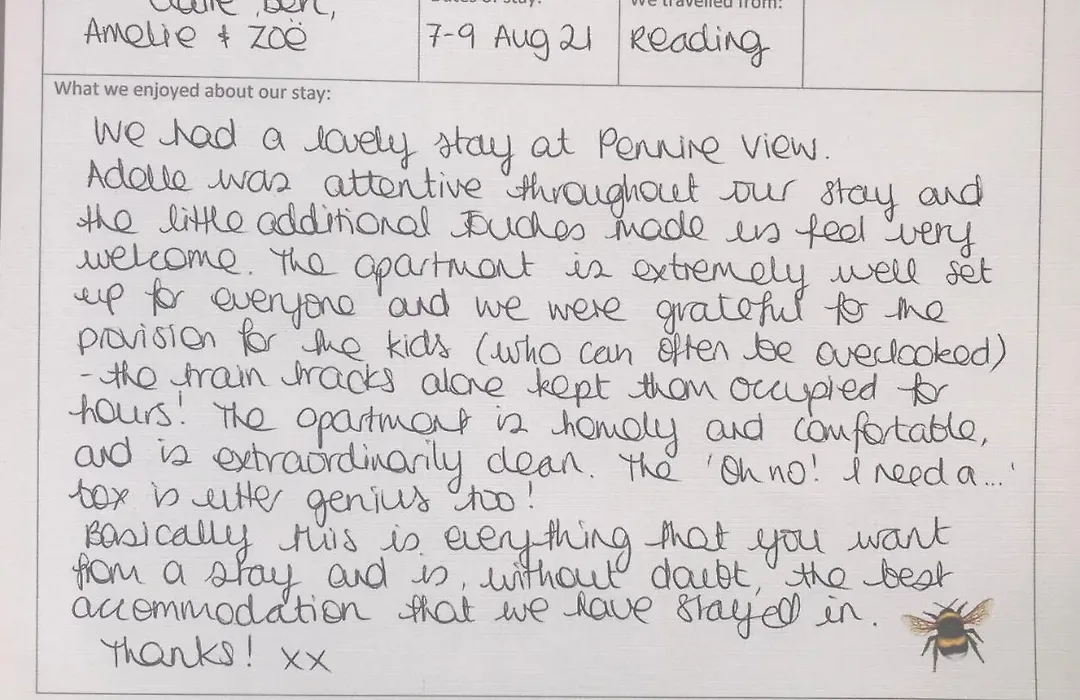 Ben,
Dates of stay:
We travelled from:
Amelie & Zoë
7-9 Aug 21
Reading
What we enjoyed about our stay:
We had a lovely stay at Pennine View.
Adelle was attentive throughout our stay and
the little additional touches made us feel very
welcome. The apartment is extremely well set
up for everyone and we were grateful for the
provision for the kids (who can often be overlooked)
- the train tracks alone kept them occupied for
hours! The apartment is homely and comfortable,
and is extraordinarily clean. The 'Oh no! I need a...'
box is utter genius too!
Basically this is everything that you want
from a stay and is, without doubt, the best
accommodation that we have stayed in.
Thanks! xx